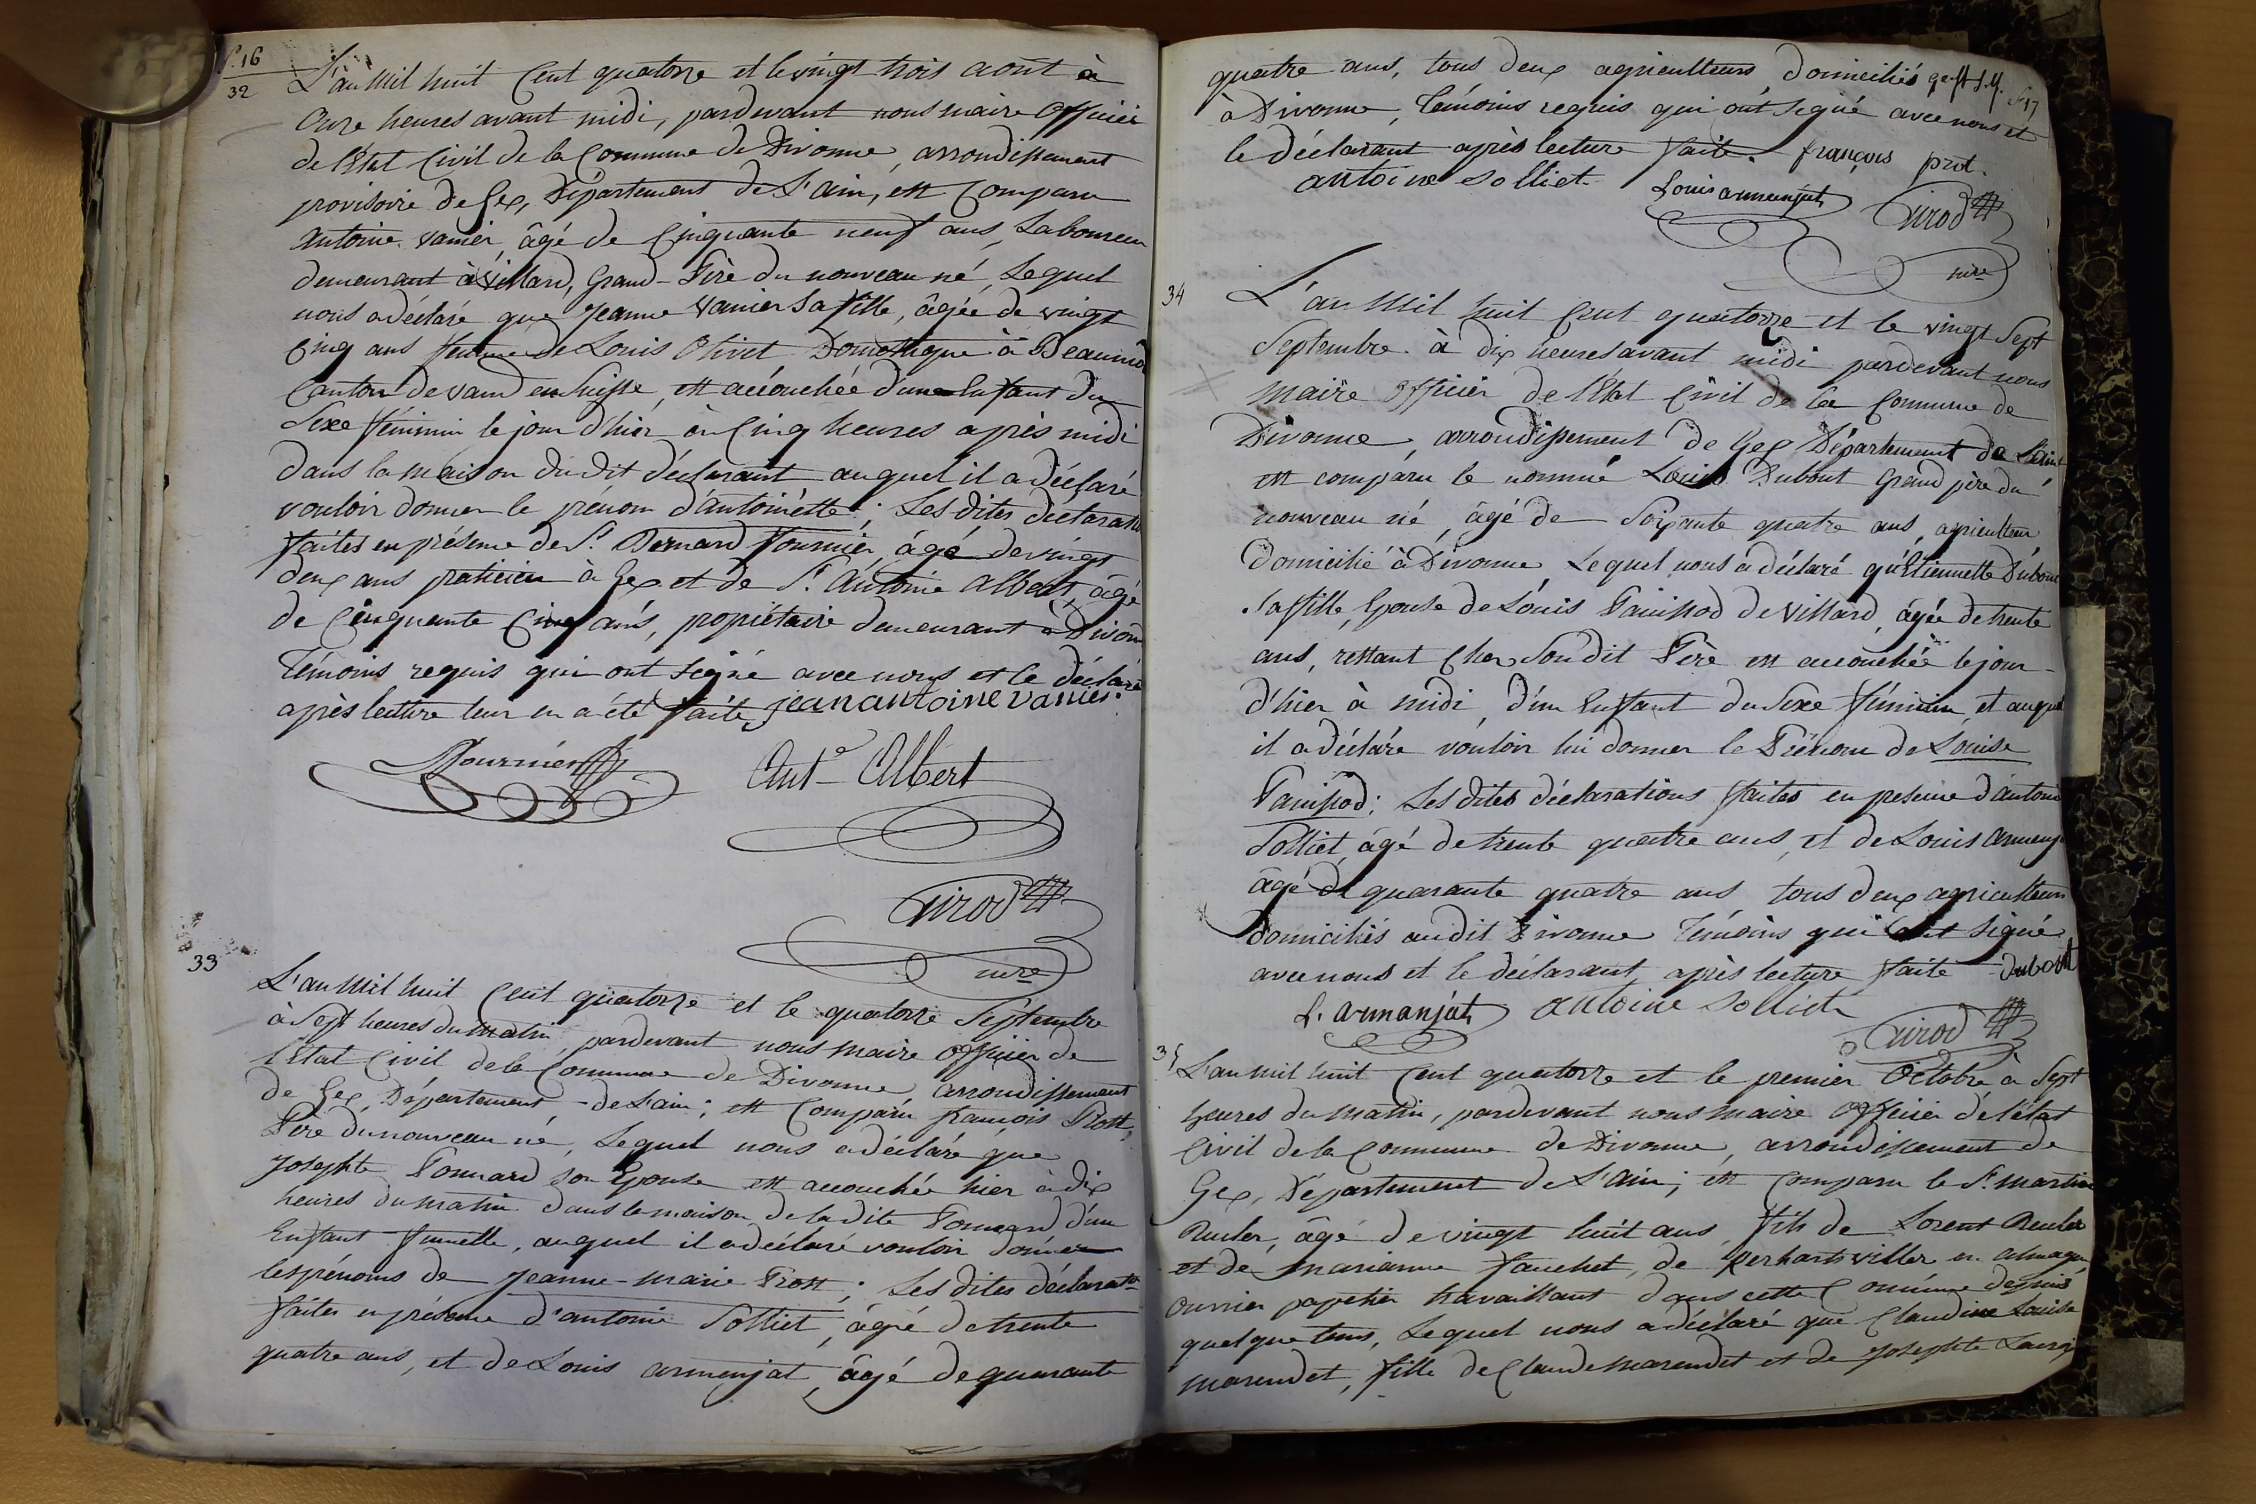 f. 16
32
L'an Mil huit Cent quatorze et le vingt trois aout à
Onze heures avant midi, pardevant nous maire Officier
de l'Etat Civil de la Commune de Divonne, arrondissement
provisoire de Gex, Département de L'ain, est Comparu
Antoine vanier âgé de Cinquante neuf ans, Laboureur
demeurant à Villard, Grand-Père du nouveau né, Lequel
nous a déclaré que Jeanne Vanier Sa fille, âgée de vingt
Cinq ans femme de Louis Olivet Domestique à Beaumo
Canton de vaud en Suisse, est accouchée d'une Enfant du
Sexe féminin le jour d'hier à Cinq heures après midi
dans la maison du dit déclarant auquel il a déclaré
vouloir donner le prénom d'antoinette; Les dites declarati
faites en présence de Sr. Bernard fournier, âgé de vingt
deux ans praticien à Gex et de Sr. Antoine Albert, âgé
de Cinquante Cinq ans, propiétaire demeurant à Divonn
Témoins requis qui ont signé avec nous et le déclara
après lecture leur en a été faite, jean antoine vanier.
Bfournier
Ante Albert
Girod
mre
33
L'an Mil huit Cent quatorze et le quatorze Septembre
à Sept heures du matin, pardevant nous maire officier de
l'Etat Civil de la Commune de Divonne, arrondissement
de Gex, Département de L'ain; est Comparu françois Prost,
Père du nouveau né, Lequel nous a déclaré que
Josephte Ponnard son Epouse est accouchée hier à dix
heures du matin dans la maison de la dite Ponnard d'un
Enfant femelle, auquel il a déclaré vouloir donner
les prénoms de Jeanne-Marie Prost; Les dites déclaratons
faites en présence d'antoine Solliet, âgé de trente
quatre ans, et de Louis armenjat, âgé de quarante
f. 17
quatre ans, tous deux agriculteurs, domiciliés
à Divonne, Témoins requis qui ont signé avec nous et
le déclarant après lecture faite. françois prot.
antoine solliet. Louis armenjat Girod
mre
34
L'an Mil huit Cent quatorze et le vingt Sept
Septembre à dix heures avant midi pardevant nous
Maire Officier de l'Etat Civil de la Commune de
Divonne, arrondissement de Gex Département de L'ain
est comparu le nommé Louis Dubout Grand père du
nouveau né, âgé de Soixante quatre ans, agriculteur
domicilié à Divonne Lequel nous a déclaré qu'Etiennette Dubout
Sa fille, Epouse de Louis Panissod de Villard, âgée de trente
ans, restant Chez Son dit Père est accouchée le jour
d'hier à midi, d'un Enfant du Sexe féminin, et auquel
il a déclaré vouloir lui donner le Prénom de Louise
Panissod; Les dites déclarations faites en présence d'antoine
Solliet, âgé de trente quatre ans, et de Louis Armenj
âgé de quarante quatre ans tous deux agriculteurs
domiciliés audit Divonne Témoins qui ont signé
avec nous et le déclarant après lecture faite Dubout
L. armanjat antoine solliet
Girod
35
L'an mil huit Cent quatorze et le premier Octobre à Sept
heures du Matin, pardevant nous maire Officier de l'état
Civil de la Commune de Divonne, arrondissement de
Gex, Département de L'ain; est Comparu le Sr. Martin
Ruler, âgé de vingt huit ans, fils de Lorent Ruler
et de Marianne fauchet, de Gerhartsviller en almagne
Ouvrier papetier travaillant dans cette Commune depuis
quelque tems, Lequel nous a déclaré que Claudine Louise
Marendet, fille de Claude Marendet et de Josephte